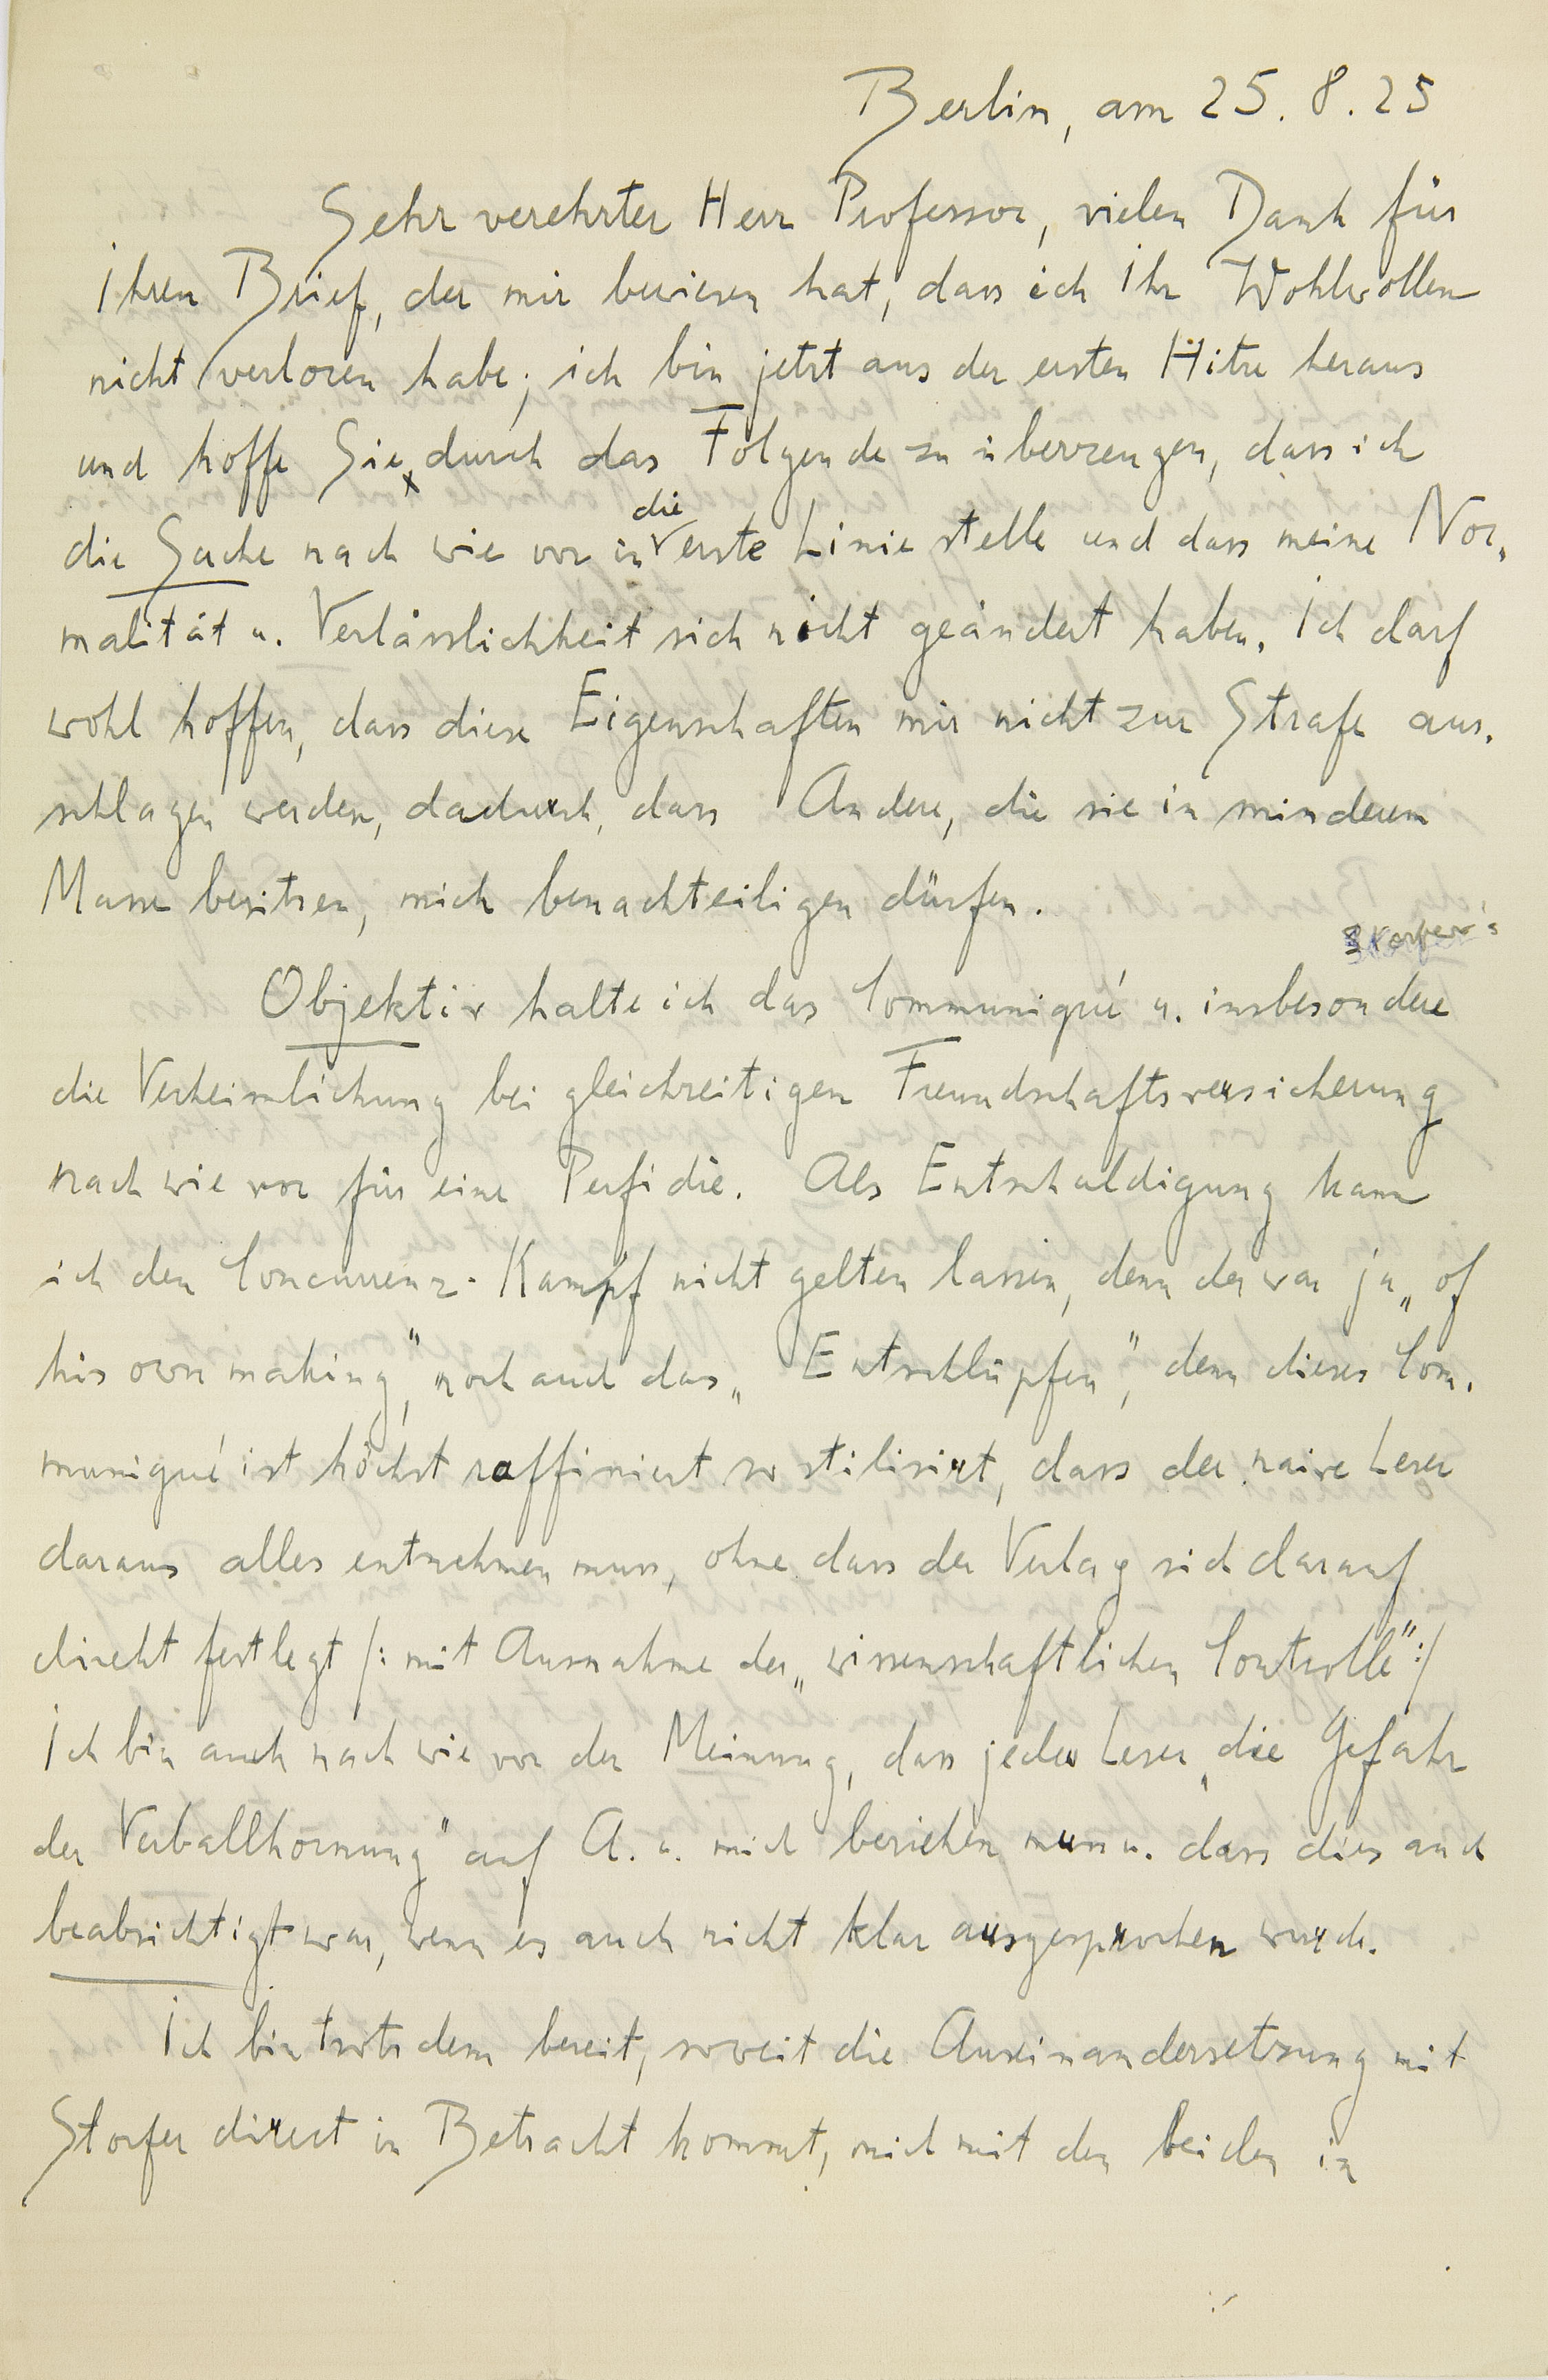 Berlin, am 25. 8. 25
Sehr verehrter Herr Professor, vielen Dank für
Ihren Brief, der mir bewiesen hat, dass ich Ihr Wohlwollen
nicht verloren habe; ich bin jetzt aus der ersten Hitze heraus
und hoffe Sie, durch das Folgende zu überzeugen, dass ich
die
die Sache nach wie vor in erste Linie stelle und dass meine Nor-
malität u. Verlässlichkeit sich nicht geändert haben. Ich darf
wohl hoffen, dass diese Eigenschaften mir nicht zur Strafe aus-
schlagen werden, dadurch, dass Andere, die sie in minderem
Masse besitzen, mich benachteiligen dürfen.
Storfer's
Objektiv halte ich das Communiqué u. insbesondere
die Verheimlichung bei gleichzeitigen Freundschaftsversicherung
nach wie vor für eine Perfidie. Als Entschuldigung kann
ich den Concurrenz-Kampf nicht gelten lassen, denn der war ja „of
his own making", noch auch das „Entschlüpfen", denn dieses Com-
muniqué ist höchst raffiniert so stilisirt, dass der naive Leser
daraus alles entnehmen muss, ohne dass der Verlag sich darauf
direkt festlegt /: mit Ausnahme der „wissenschaftlichen Controlle":/
Ich bin auch nach wie vor der Meinung, dass jeder Leser „die Gefahr
der Verballhornung" auf A. u. mich beziehen muss u. dass dies auch
beabsichtigt war, wenn es auch nicht klar ausgesprochen wurde.
Ich bin trotzdem bereit, soweit die Auseinandersetzung mit
Storfer direct in Betracht kommt, mich mit den beiden in